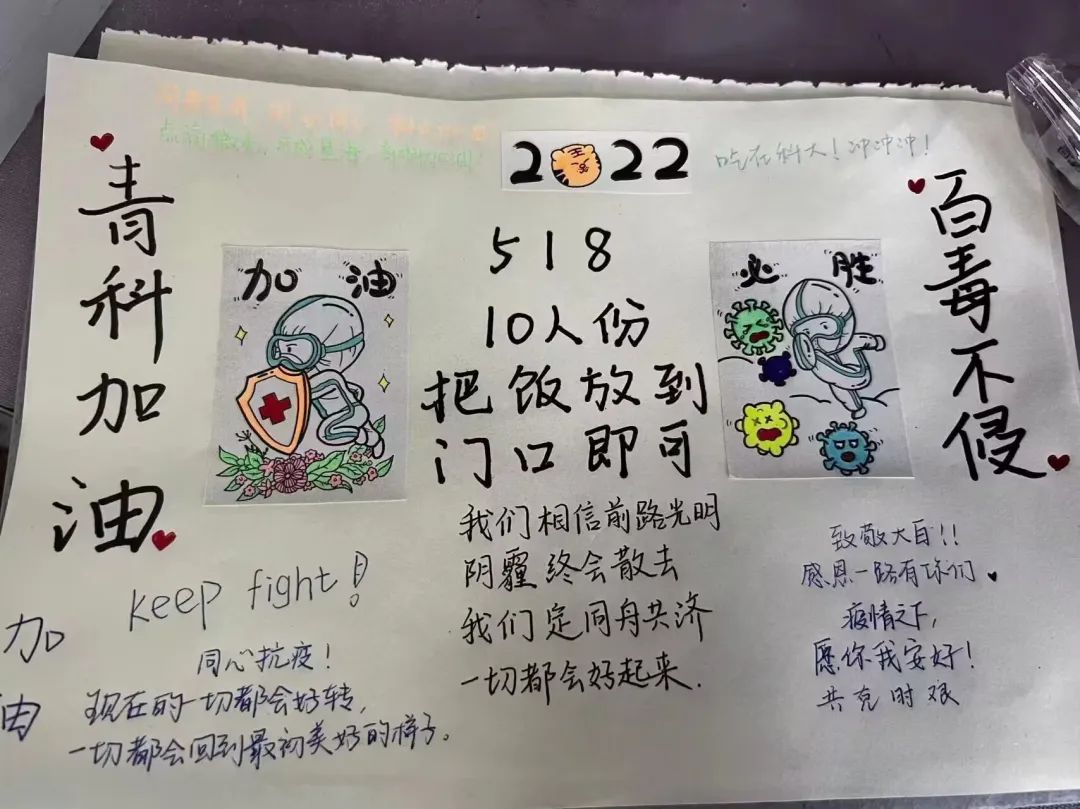 2022
吃在科大！冲冲冲！
青科加油
加油
518
10人份
把饭放到
门口即可
必胜
百毒不侵
我们相信前路光明
阴霾终会散去
我们定同舟共济
一切都会好起来.
keep fight!
同心抗疫！
现在的一切都会好转,
一切都会回到最初美好的样子.
加
油
致敬大白!!
感恩一路有你们
疫情之下,
愿你我安好！
共克时艰